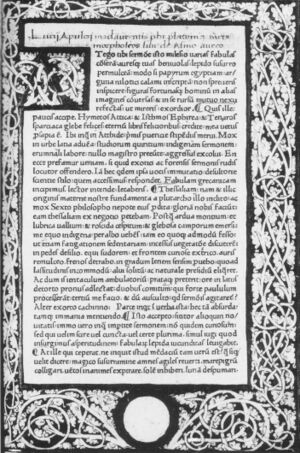 Lucii Apuleii
morphoseos liber
T Ego tibi sermõe isto milesio varias fabulas
cõserã aureſq; tuas beniuolas lepido susurro
permulceã: modo si papyrum egyptiam ar-
gutia nilotici calami inscriptã: non spreueris
inspicere: figuras fortunasq; hominũ in alias
imagines cõuersas: & in se rursũ mutuo nexu
refectas: ut mireris: exordior. Quis ille:
paucis accipe. Hymetos Attica: & Isthmos Ephyrea: & Tenaros
spartiaca glebe felices: eternũ libris felicioribus cõdite: mea uetus
prosapia ẽ. Ibi
in urbe latia aduena studiorum quiritium: indigenam sermonem:
erumnabili labore: nullo magistro preeunte: aggressus excolui. En
ecce prefamur ueniam: si quid exotici ac forensis sermonis rudis
locutor offendero. Iã hec qdem ipsa uocis immutatio: desultorie
scientie stilo: quem accessimus: respondet. Fabulam grecanicam
incipimus: lector intende: letaberis. Thessaliam: nam & illic
originis materne nostre fundamenta a plutarcho illo inclito: ac
mox Sexto philosopho nepote eius pdita: gloriã nobis faciũt:
eam thessaliam ex negocio petebam. Postq̃ ardua montium: &
lubrica uallium: & roscida cespitum: & glebosa camporum emersi:
me equo indigena peralbo uehens:
ut etiam fatigationem sedentariam: incessus
in pedes desilio. equi sudorem: & frontem curiose exfrico: auris
remulceo: frenos detraho. in gradum lenem sensim
lassitudinis incommodũ: alui solitũ: ac naturale presidiũ
Ac dum is ientaculum ambulatoriũ: prata: que preterit: ore in latus
detorto pronus affectat: duobus comitum: qui forte paululum
processerãt: tertiũ me facio. ac dũ ausculto: qd sermõis agitarent:
Alter exerto cachinno: Parce inqt: in uerba ista hec tã absurda:
tamq; immania mentiendo. Isto accepto: sititor alioquin no-
uitatis: immo uero inq̃ impertite sermonem: nõ quidem curiosum:
sed qui uelim scire uel cuncta: uel certe plurima. simul iugi: quod
insurgimus: asperitudinem: fabularũ lepida iucunditas leuigabit.
At ille qui ceperat. ne inquit istud mẽdaciũ tam uerũ est: q̃ siq̃
uelit dicere: magico susurramine amnes agiles reuerti: mare pigrũ
colligari: uẽtos inanimes expirare: solẽ inhiberi. lunã despumari: